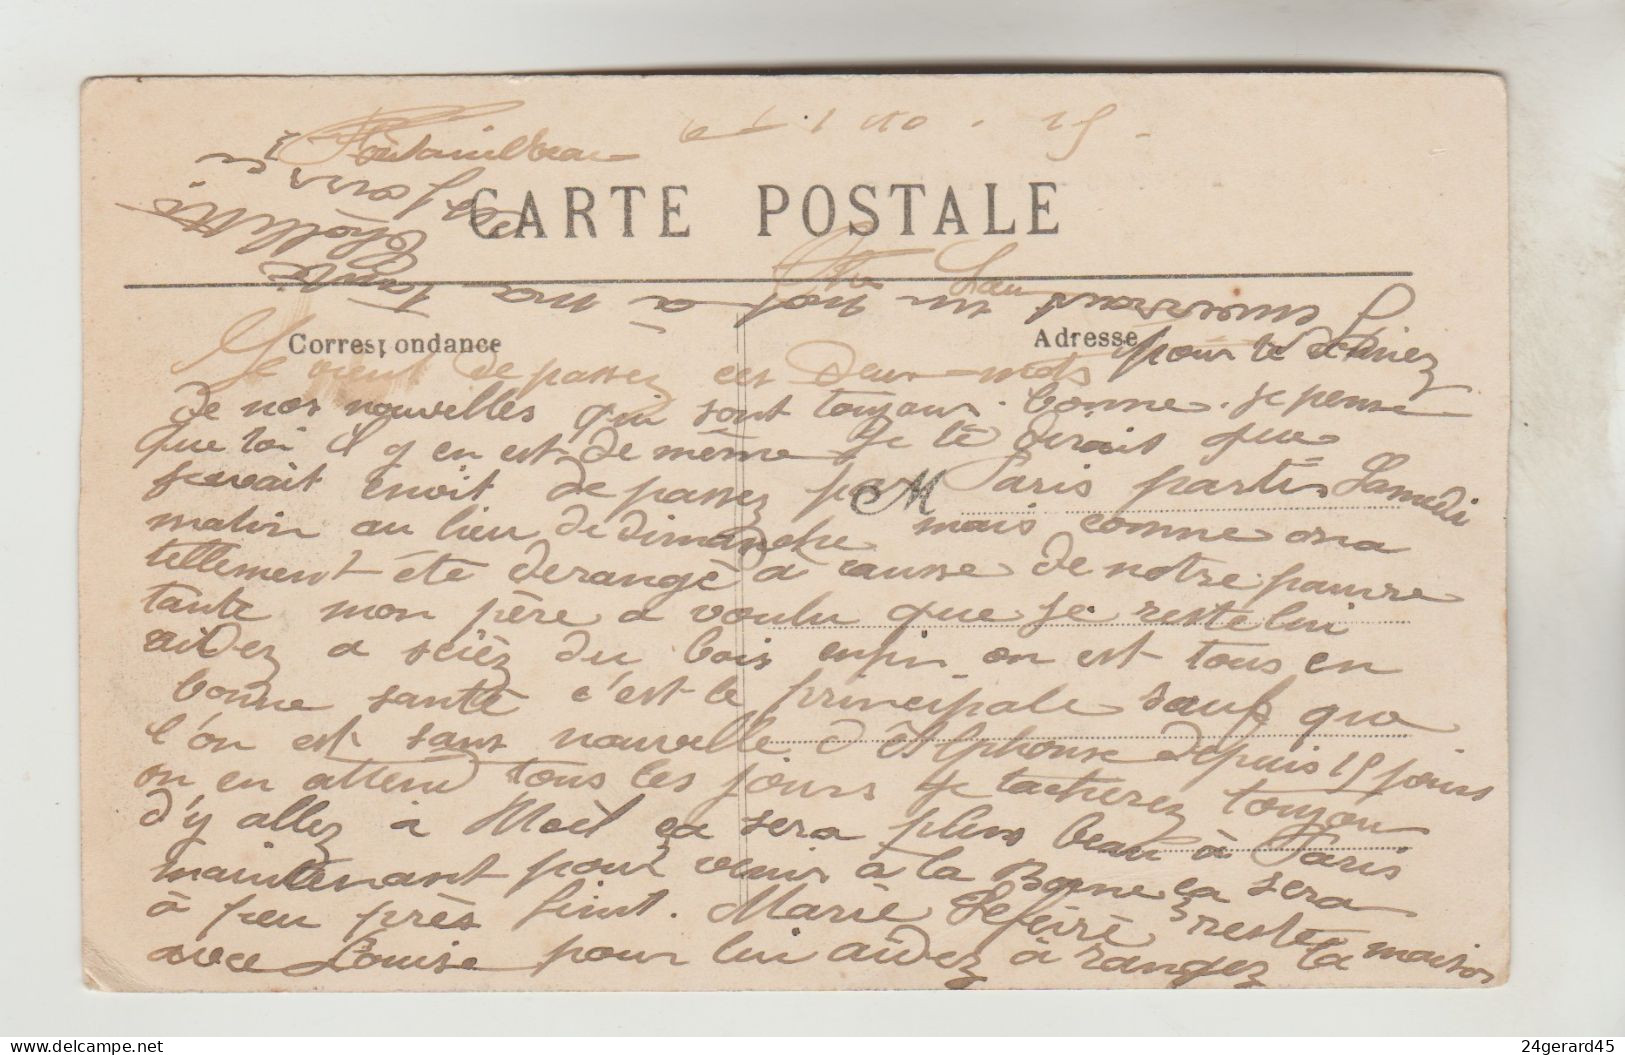 Fontainebleau 15
CARTE POSTALE
Correspondance
Adresse
Je vient de passez ces deux mots pour te donnez
de nos nouvelles qui sont toujour bonne. je pense
que toi il y en est de même Je te dirait que
j'avait envoit de passez par Paris partis Samedi
M
matin au lieu de dimanche mais comme on a
tellement été derangé a cause de notre pauvre
tante mon père a voulu que je reste lui
aidez a sciéz du bois enfin on est tous en
bonne santé c'est le principale sauf que
l'on est sans nouvelle d'Alphonse depuis 15 jours
on en attend tous les jours Je tacherez toujour
d'y allez à Noël ça sera plus beau à Paris
maintenant pour venir à la Bonne ça sera
à peu près finit. Marie reste
avec Louise pour lui aidez à rangez la maison
envoyant un mot à ma tante
24gerard45
delcampe.net